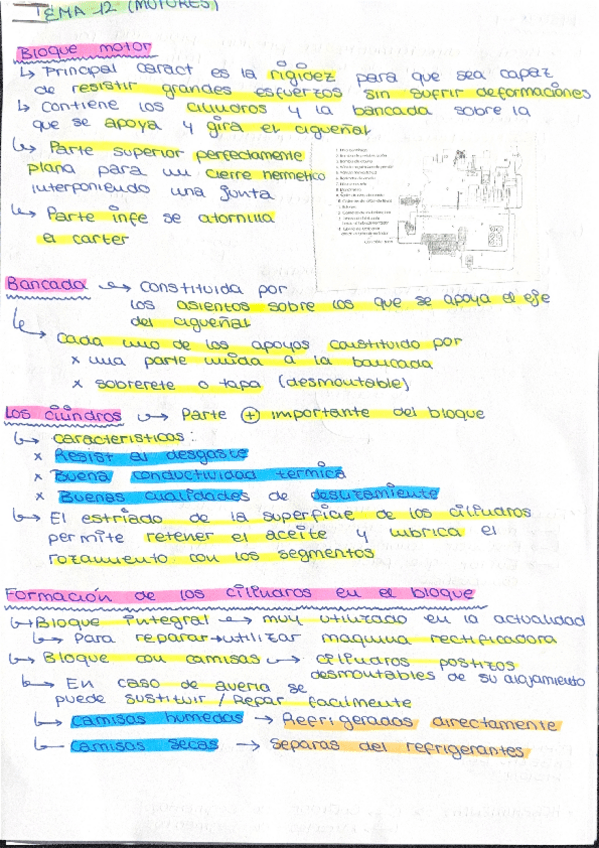 TEMA 12 (MOTORES)
Bloque motor
↳ Principal caract es la rigidez para que sea capaz
de resistir grandes esfuerzos sin sufrir deformaciones
↳ Contiene los cilindros y la bancada sobre la
que se apoya y gira el cigueñal
↳ Parte superior perfectamente
plana para un cierre hermetico
interponiendo una junta
↳ Parte infe se atornilla
el carter
Bancada → constituida por
los asientos sobre los que se apoya el eje
del cigueñal
↳ Cada uno de los apoyos constituido por
x una parte unida a la bancada
x sobrerete o tapa (desmontable)
Los cilindros → Parte + importante del bloque
↳ caracteristicas:
x Resist al desgaste
x Buena conductividad termica
x Buenas cualidades de deslizamiento
↳ El estriado de la superficie de los cilindros
permite retener el aceite y lubrica el
rozamiento con los segmentos
Formación de los cilindros en el bloque
↳ Bloque integral → muy utilizado en la actualidad
↳ Para reparar → utilizar maquina rectificadora
↳ Bloque con camisas → cilindros postizos
desmontables de su alojamiento
↳ En caso de averia se
puede sustituir / Repar facilmente
↳ camisas humedas → Refrigerados directamente
↳ camisas secas → separas del refrigerantes